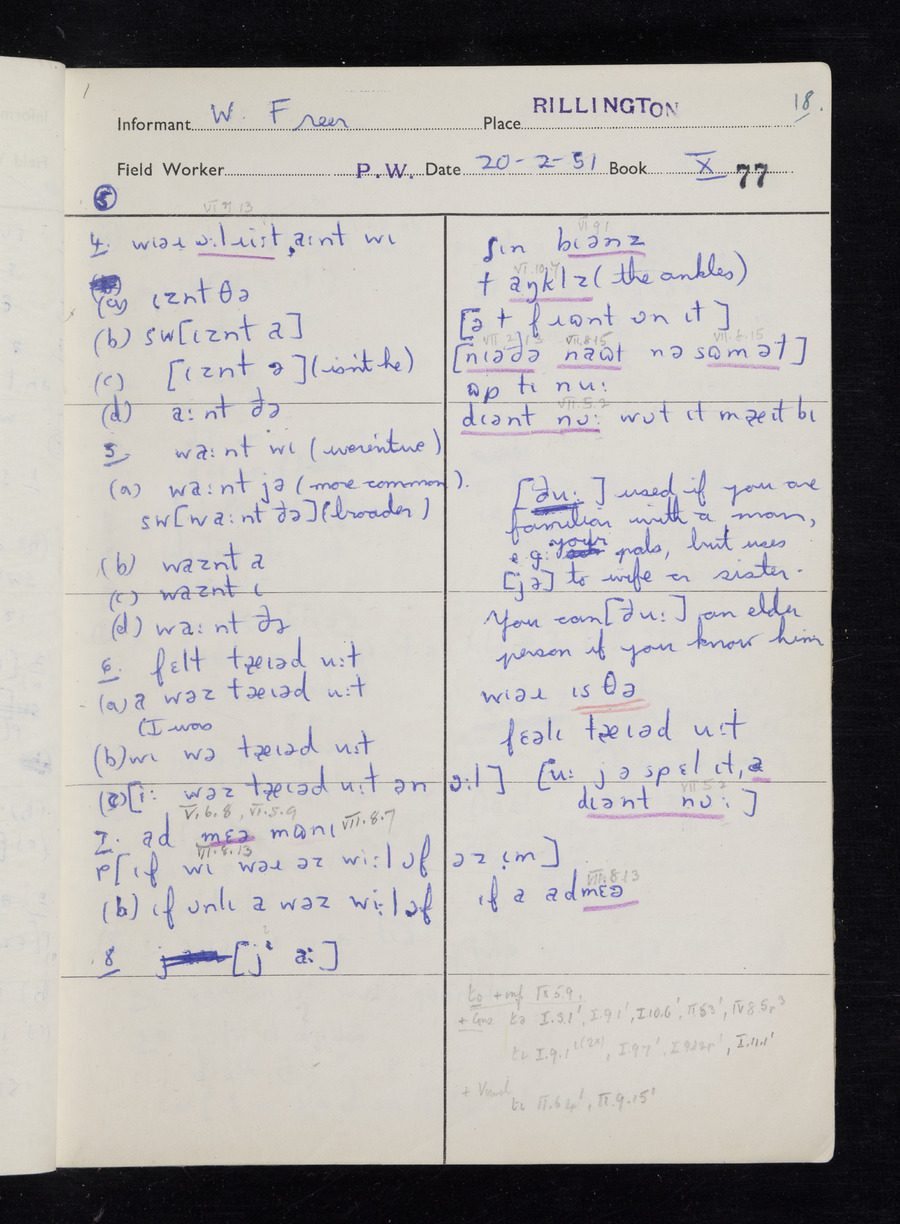 18.
Informant W. Freer Place RILLINGTON
Field Worker P.W. Date 20-2-51 Book X 77
5
VI 7 13
4. wiəɹ ɒːl ɹiːt, aint wi
(a) ɪznt θə
(b) sw[ɪznt a]
(c) [ɪznt ə] (isn't he)
(d) aːnt ðə
5. waːnt wi (weren't we)
(a) waːnt jə (more common).
sw[waːnt ðə] (broader)
(b) waznt a
(c) waznt ɪ
(d) waːnt ðə
6. fɛlt tæɪəd uːt
(a) a wəz tæɪəd uːt
(I was
(b) wɪ wə tæɪəd uːt
(c) [iː wəz tæɪəd uːt ən ɔːl]
V.6.8, VI.5.9
7. ad mɛə mɒnɪ VII.8.7
VII.8.13
p[ɪf wɪ wəɹ əz wiːl ɒf əz ɪm]
(b) ɪf ɒnlɪ a wəz wiːl ɒf
8 [j aː]
VI 9 1
ʃɪn bɪənz
VI.10.7
t aŋklz (the ankles)
[ə t fɹɒnt ɒn ɪt]
VII.2.13 VII.8.15 VII.8.15
[nɪəðə naʊt nə sʊmət]
ʊp tɪ nuː
VII.5.2
dɪənt nɒː wɒt ɪt mæɪt bɪ
[ðuː] used if you are
familiar with a man,
e.g. your pals, but uses
[jə] to wife or sister.
You can [ðuː] an elder
person if you know him
wiəɹ ɪs θə
fɛəlɪ tæɪəd uːt
[uː jə spɛl ɪt, a
VII 5.2
dɪənt nɒː]
VII.8.13
ɪf a ad mɛə
to + inf IX 5.9,
+ Cons tə I.3.1', I.9.1', I.10.6', II.8.3', IV 8.5,
I.9.7', I.11.1'
+ Vowel
tɪ II.6.4', II.9.15'